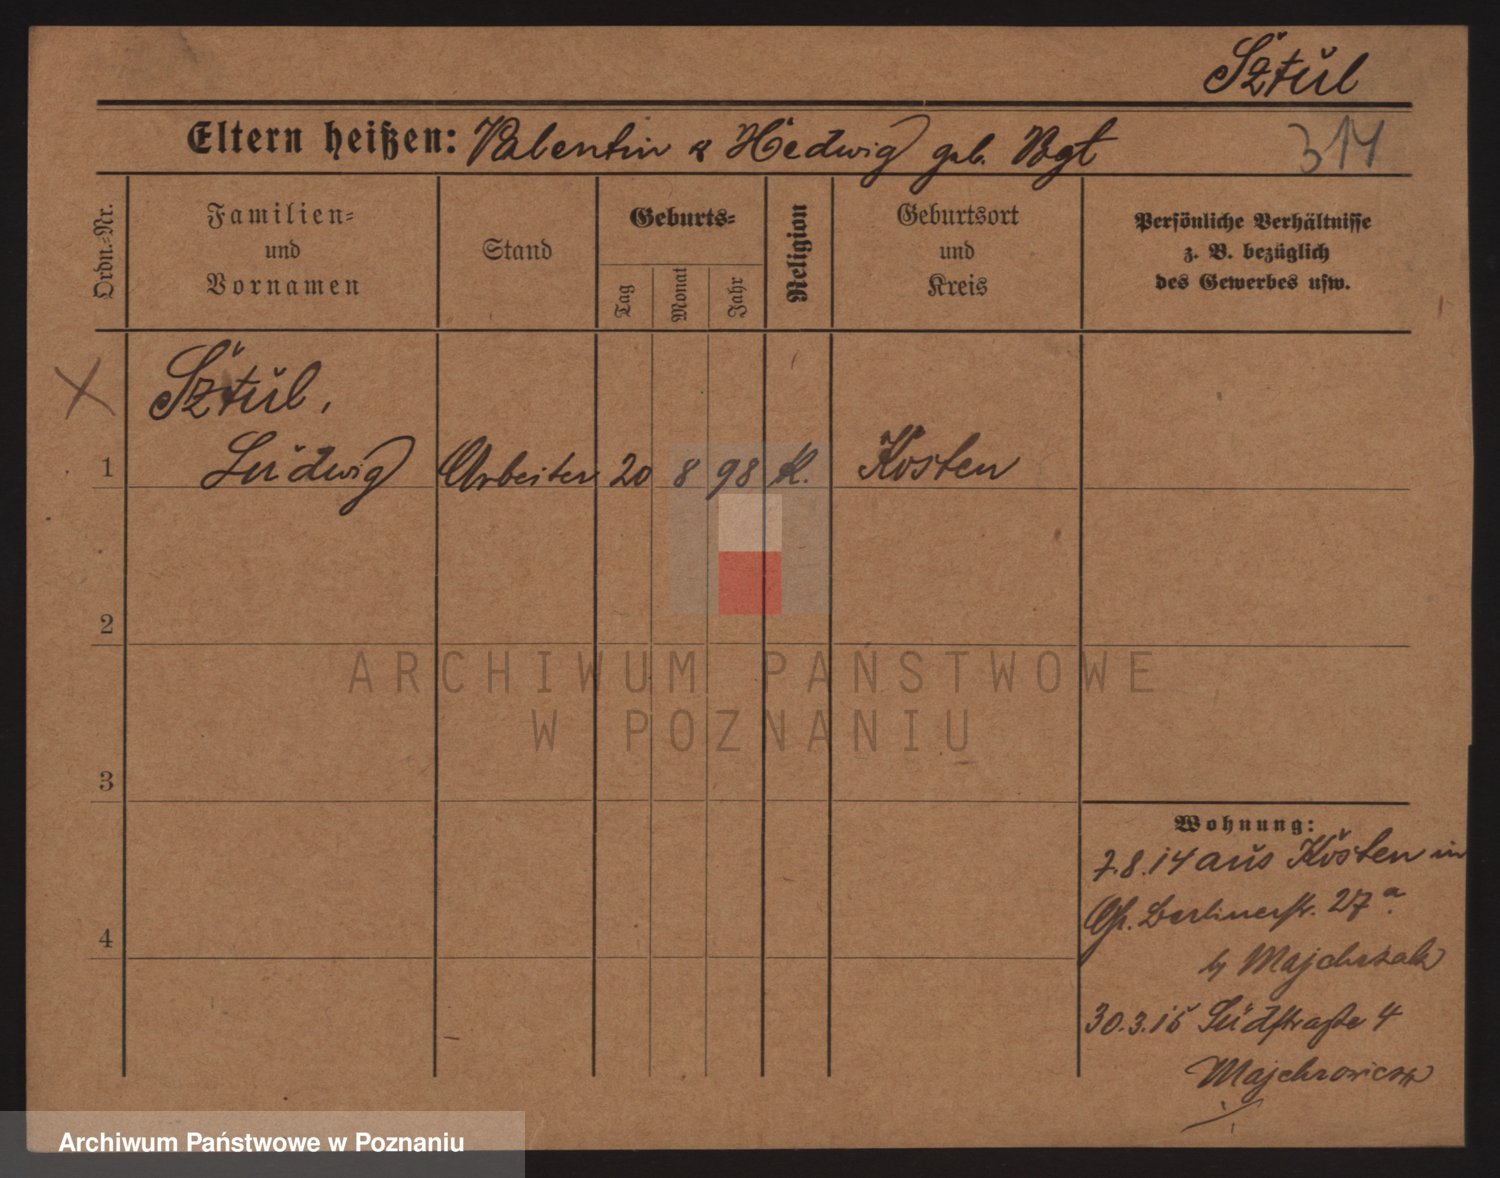 Sztul
Eltern heißen: Valentin & Hedwig geb. Vogt
314
Ordn.=Nr.
Familien=
und
Vornamen
Stand
Geburts=
Tag
Monat
Jahr
Religion
Geburtsort
und
Kreis
Persönliche Verhältnisse
z. B. bezüglich
des Gewerbes usw.
Sztul,
1 Ludwig Arbeiter 20 8 98 K. Kosten
2
ARCHIWUM PAŃSTWOWE
W POZNANIU
3
Wohnung:
7.8.14 aus Kosten in
Berlinerstr. 27a.
4
b/ Majchrzak
30.3.15 Südstraße 4
Majchrowicz
Archiwum Państwowe w Poznaniu